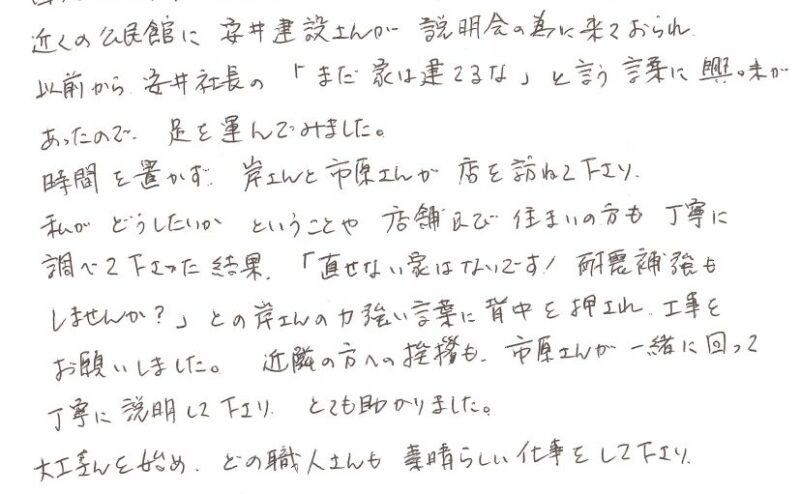 近くの公民館に 安井建設さんが 説明会の為に来ておられ
以前から 安井社長の 「まだ 家は建てるな」と言う 言葉に 興味が
あったので、足を運んでみました。
時間を置かず 岸さんと市原さんが 店を訪ねて下さり、
私が どうしたいか ということや 店舗及び 住まいの方も 丁寧に
調べて下さった結果、「直せない家はないです! 耐震補強も
しませんか?」との岸さんの力強い言葉に背中を押され、工事を
お願いしました。 近隣の方への挨拶も、市原さんが 一緒に回って
丁寧に説明して下さり とても助かりました。
大工さんを始め、どの職人さんも 素晴らしい仕事をして下さり、